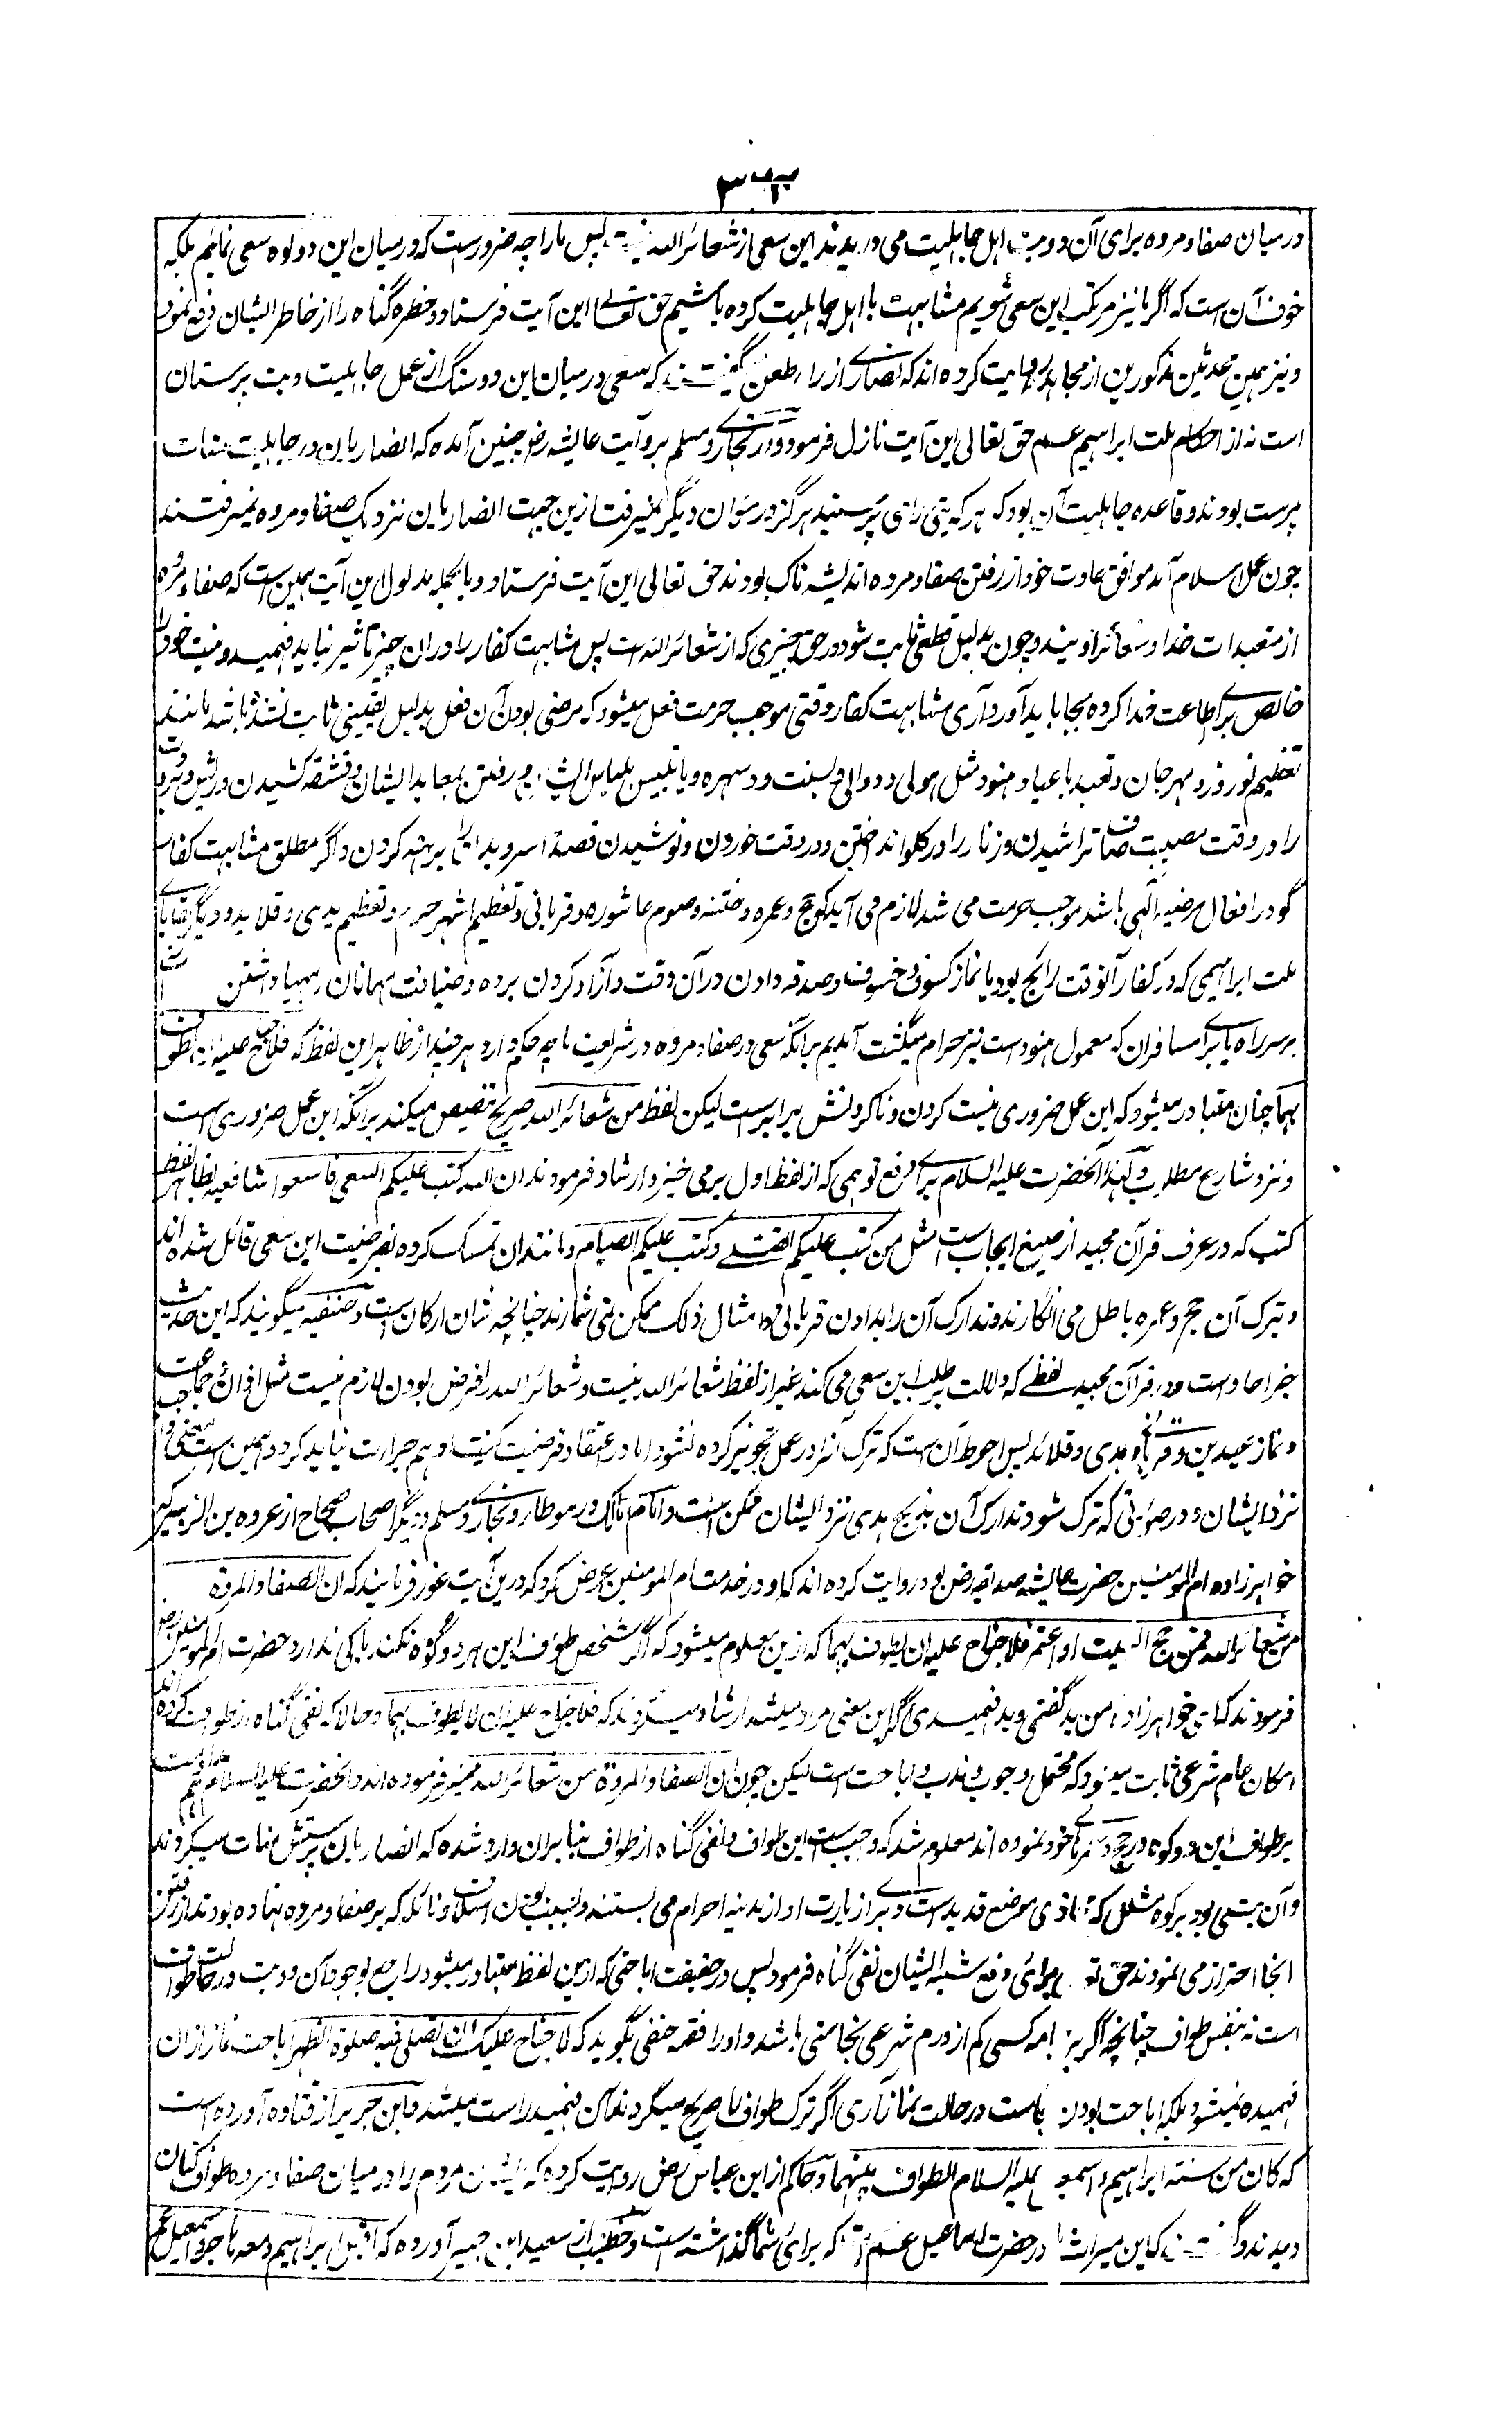 درمیان صفا و مروه برای آن دو بت اهل جاهلیت می دویدند این سعی از شعائر الله نیست پس ما را چه ضرورست که درمیان این دو کوه سعی نمائیم بلکه
خوف آن است که اگر ما نیز مرتکب این سعی شویم مشابهت با اهل جاهلیت کرده باشیم حق تعالی این آیت فرستاد و خطره گناه را از خاطر ایشان دفع نمود
و نیز همین محدثین مذکورین از مجاهد روایت کرده اند که نصاری از راه طعن گفتند که سعی درمیان این دو سنگ از عمل جاهلیت و بت پرستان
است نه از احکام ملت ابراهیم عسم حق تعالی این آیت نازل فرمود و در بخاری و مسلم بروایت عایشه رض چنین آمده که انصاریان در جاهلیت منات
پرست بودند و قاعده جاهلیت آن بود که هر که بتی را می پرستید هرگز در بتان دیگر نمیرفت ازین جهت انصاریان نزدیک صفا و مروه نمیرفتند
چون عمل اسلام آمد موافق عادت خود از رفتن صفا و مروه اندیشه ناک بودند حق تعالی این آیت فرستاد و بالجمله مدلول این آیت همین است که صفا و مروه
از متعبدات خدا و شعائر اویند و چون بدلیل قطعی ثابت شود در حق چیزی که از شعائر الله است پس مشابهت کفار را دران چیز تاثیر نباید فهمید و نیت خود را
خالص برای اطاعت خدا کرده بجا باید آورد آری مشابهت کفار وقتی موجب حرمت فعل میشود که مرضی بودن آن فعل بدلیل یقینی ثابت نشده باشد مانند
تعظیم نوروز و مهرجان و تعبد باعیاد هنود مثل هولی و دوالی و بسنت و دسهره و یا تلبیس بلباس ایشان و رفتن بمعابد ایشان و قشقه کشیدن و ریش و بروت
را در وقت مصیبت صاف تراشیدن و زنار را در گلو انداختن و در وقت خوردن و نوشیدن قصدا سر و بدن را برهنه کردن و اگر مطلق مشابهت کفار
گو در افعال مرضیه الهی باشد موجب حرمت می شد لازم می آید که حج و عمره و ختنه و صوم عاشوره و قربانی و تعظیم اشهر حرم و تعظیم هدی و قلاید و دیگر بقایای
ملت ابراهیمی که در کفار آنوقت رائج بود یا نماز کسوف و خسوف و صدقه دادن در آن وقت و آزاد کردن برده و ضیافت مهمانان و مهیا داشتن
بر سر راه ها برای مسافران که معمول هنود است نیز حرام میگشت آمدیم برآنکه سعی در صفا و مروه در شریعت ما چه حکم دارد هر چند از ظاهر این لفظ که فلا جناح علیه ان یطوف
بهما چنان متبادر میشود که این عمل ضروری نیست کردن و ناکردنش برابرست لیکن لفظ من شعائر الله صریح تنصیص میکند برآنکه این عمل ضروری است
و نزد شارع مطلوب و لهذا آنحضرت علیه السلام برای رفع توهمی که از لفظ اول برمی خیزد ارشاد فرمودند ان الله کتب علیکم السعی فاسعوا شافعیه بظاهر لفظ
کتب که در عرف قرآن مجید از صیغ ایجاب است مثل کتب علیکم القتلی و کتب علیکم الصیام و مانند آن تمسک کرده بفرضیت این سعی قائل شده اند
و بترک آن حج و عمره باطل می انگارند و تدارک آن را بدادن قربانی و امثال ذلک ممکن نمی شمارند چنانچه شان ارکان است و حنفیه میگویند که این حدیث
خبر احاد است و در قرآن مجید لفظی که دلالت بر طلب این سعی می کند غیر از لفظ شعائر الله نیست و شعائر الله را فرض بودن لازم نیست مثل اذان و جماعت
و نماز عیدین و قربانی و هدی و قلائد پس احوط آن است که ترک آنرا در عمل تجویز کرده نشود اما در اعتقاد فرضیت کنیت او هم جرأت نباید کرد و همین است معنی واجب
نزد ایشان و در صورتی که ترک شود تدارک آن بذبح هدی نزد ایشان ممکن است و امام مالک در موطا و بخاری و مسلم و دیگر اصحاب صحاح از عروه بن الزبیر که
خواهرزاده ام المؤمنین حضرت عایشه صدیقه رض بود روایت کرده اند که او در خدمت ام المومنین عرض کرد که درین آیت غور فرمایند که ان الصفا والمروة
من شعائر الله فمن حج البیت او اعتمر فلا جناح علیه ان یطوف بهما که ازین معلوم میشود که اگر شخص طواف این هر دو کوه نکند باکی ندارد حضرت ام المومنین رض
فرمودند که ای خواهرزاده من بد گفتی و بد فهمیدی اگر این معنی مراد میشد ارشاد میکردند که فلا جناح علیه ان لا یطوف بهما و حالا که نفی گناه از طواف کرده اند
امکان عام شرعی ثابت میشود که محتمل وجوب و ندب و اباحت است لیکن چون ان الصفا والمروة من شعائر الله فرموده اند و آنحضرت علیه السلام هم مداومت
بر طواف این دو کوه در حج و عمره های خود نموده اند معلوم شد که واجب است این طواف و نفی گناه از طواف بنابران وارد شده که انصاریان پرستش منات میکردند
و آن بتی بود بر کوه مشلل که محاذی موضع قدید است و برای زیارت او از مدینه احرام می بستند و بسبب بودن اساف و نائله که بر صفا و مروه نهاده بودند از رفتن
انجا احتراز می نمودند حق تعالی برای دفع شبه ایشان نفی گناه فرمود پس در حقیقت اباحتی که ازین لفظ متبادر میشود راجع بوجود آن دو بت در حالت طواف
است نه بنفس طواف چنانچه اگر بر جامه کسی کم از درم شرعی نجاستی باشد و او را فقیه حنفی بگوید که لا جناح علیک ان تصلی فیه صلوة الظهر اباحت نماز ازان
فهمیده نمیشود بلکه اباحت بودن نجاست در حالت نماز آری اگر ترک طواف را صریح میکردند آن فهمید راست میشد و ابن جریر از قتاده آورده است
که کان من سنة ابراهیم و اسمعیل علیه السلام الطواف بینهما و حاکم از ابن عباس رض روایت کرده که ایشان مردم را درمیان صفا و مروه طواف کنان
دیدند و گفتند که این میراث مادر حضرت اسماعیل عسم است که برای شما گذاشته است و خطیب از سعید ابن جبیر آورده که اقبل ابراهیم و معه هاجر و اسمعیل علیهم